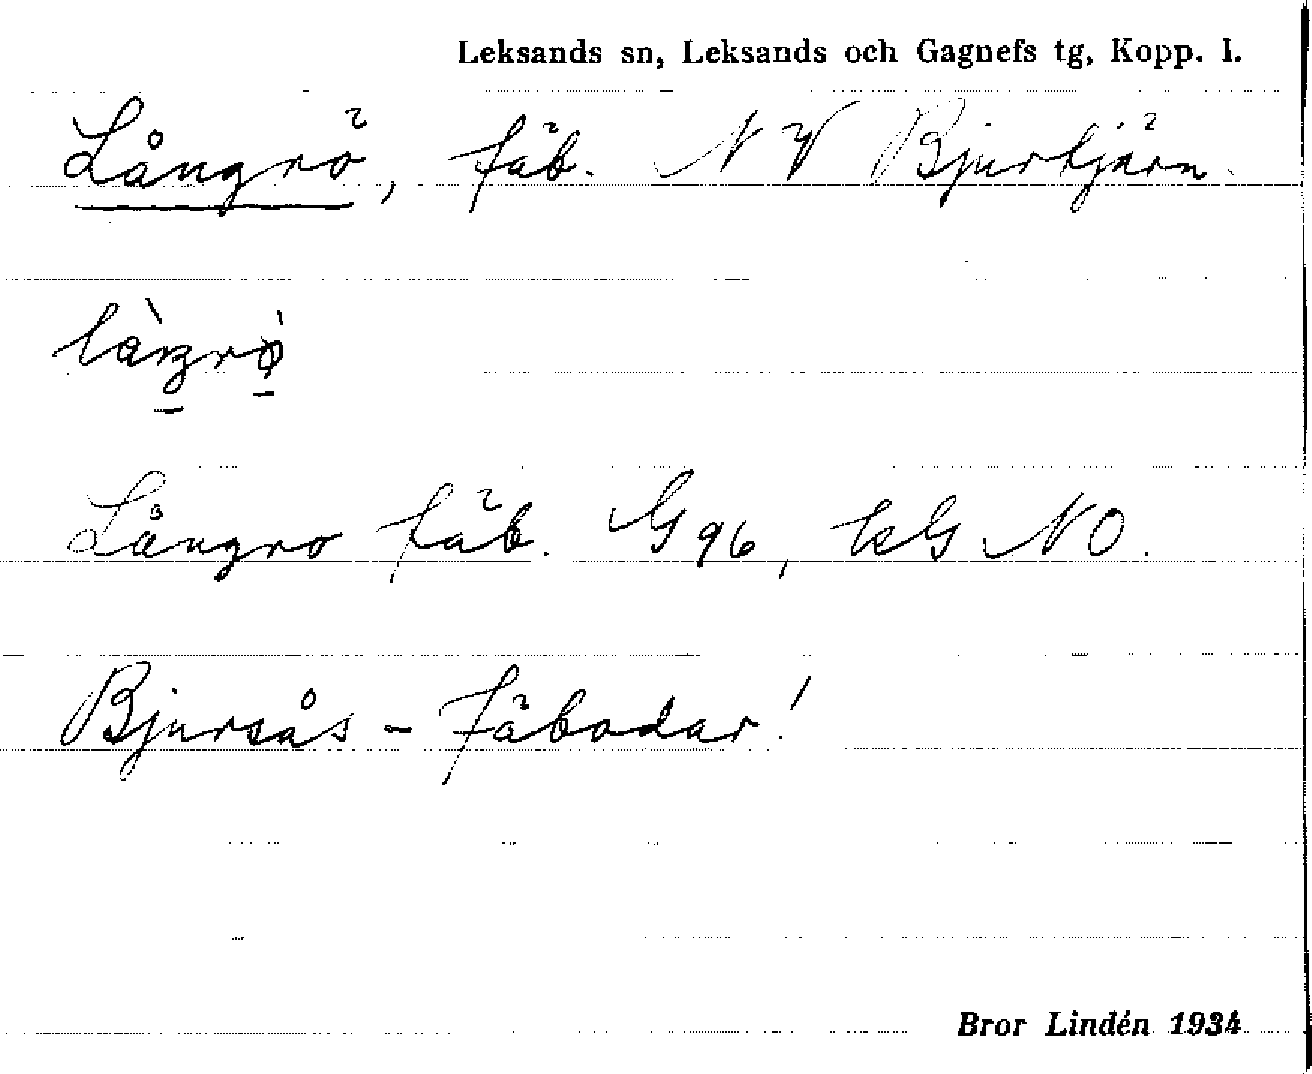 Leksands sn, Leksands och Gagnefs tg, Kopp. l.
Långrö, fäb. NV Bjurtjärn.
Långro fäb. G96, kG NO.
Bjursås - Fäbodar!
Bror Lindén 1934